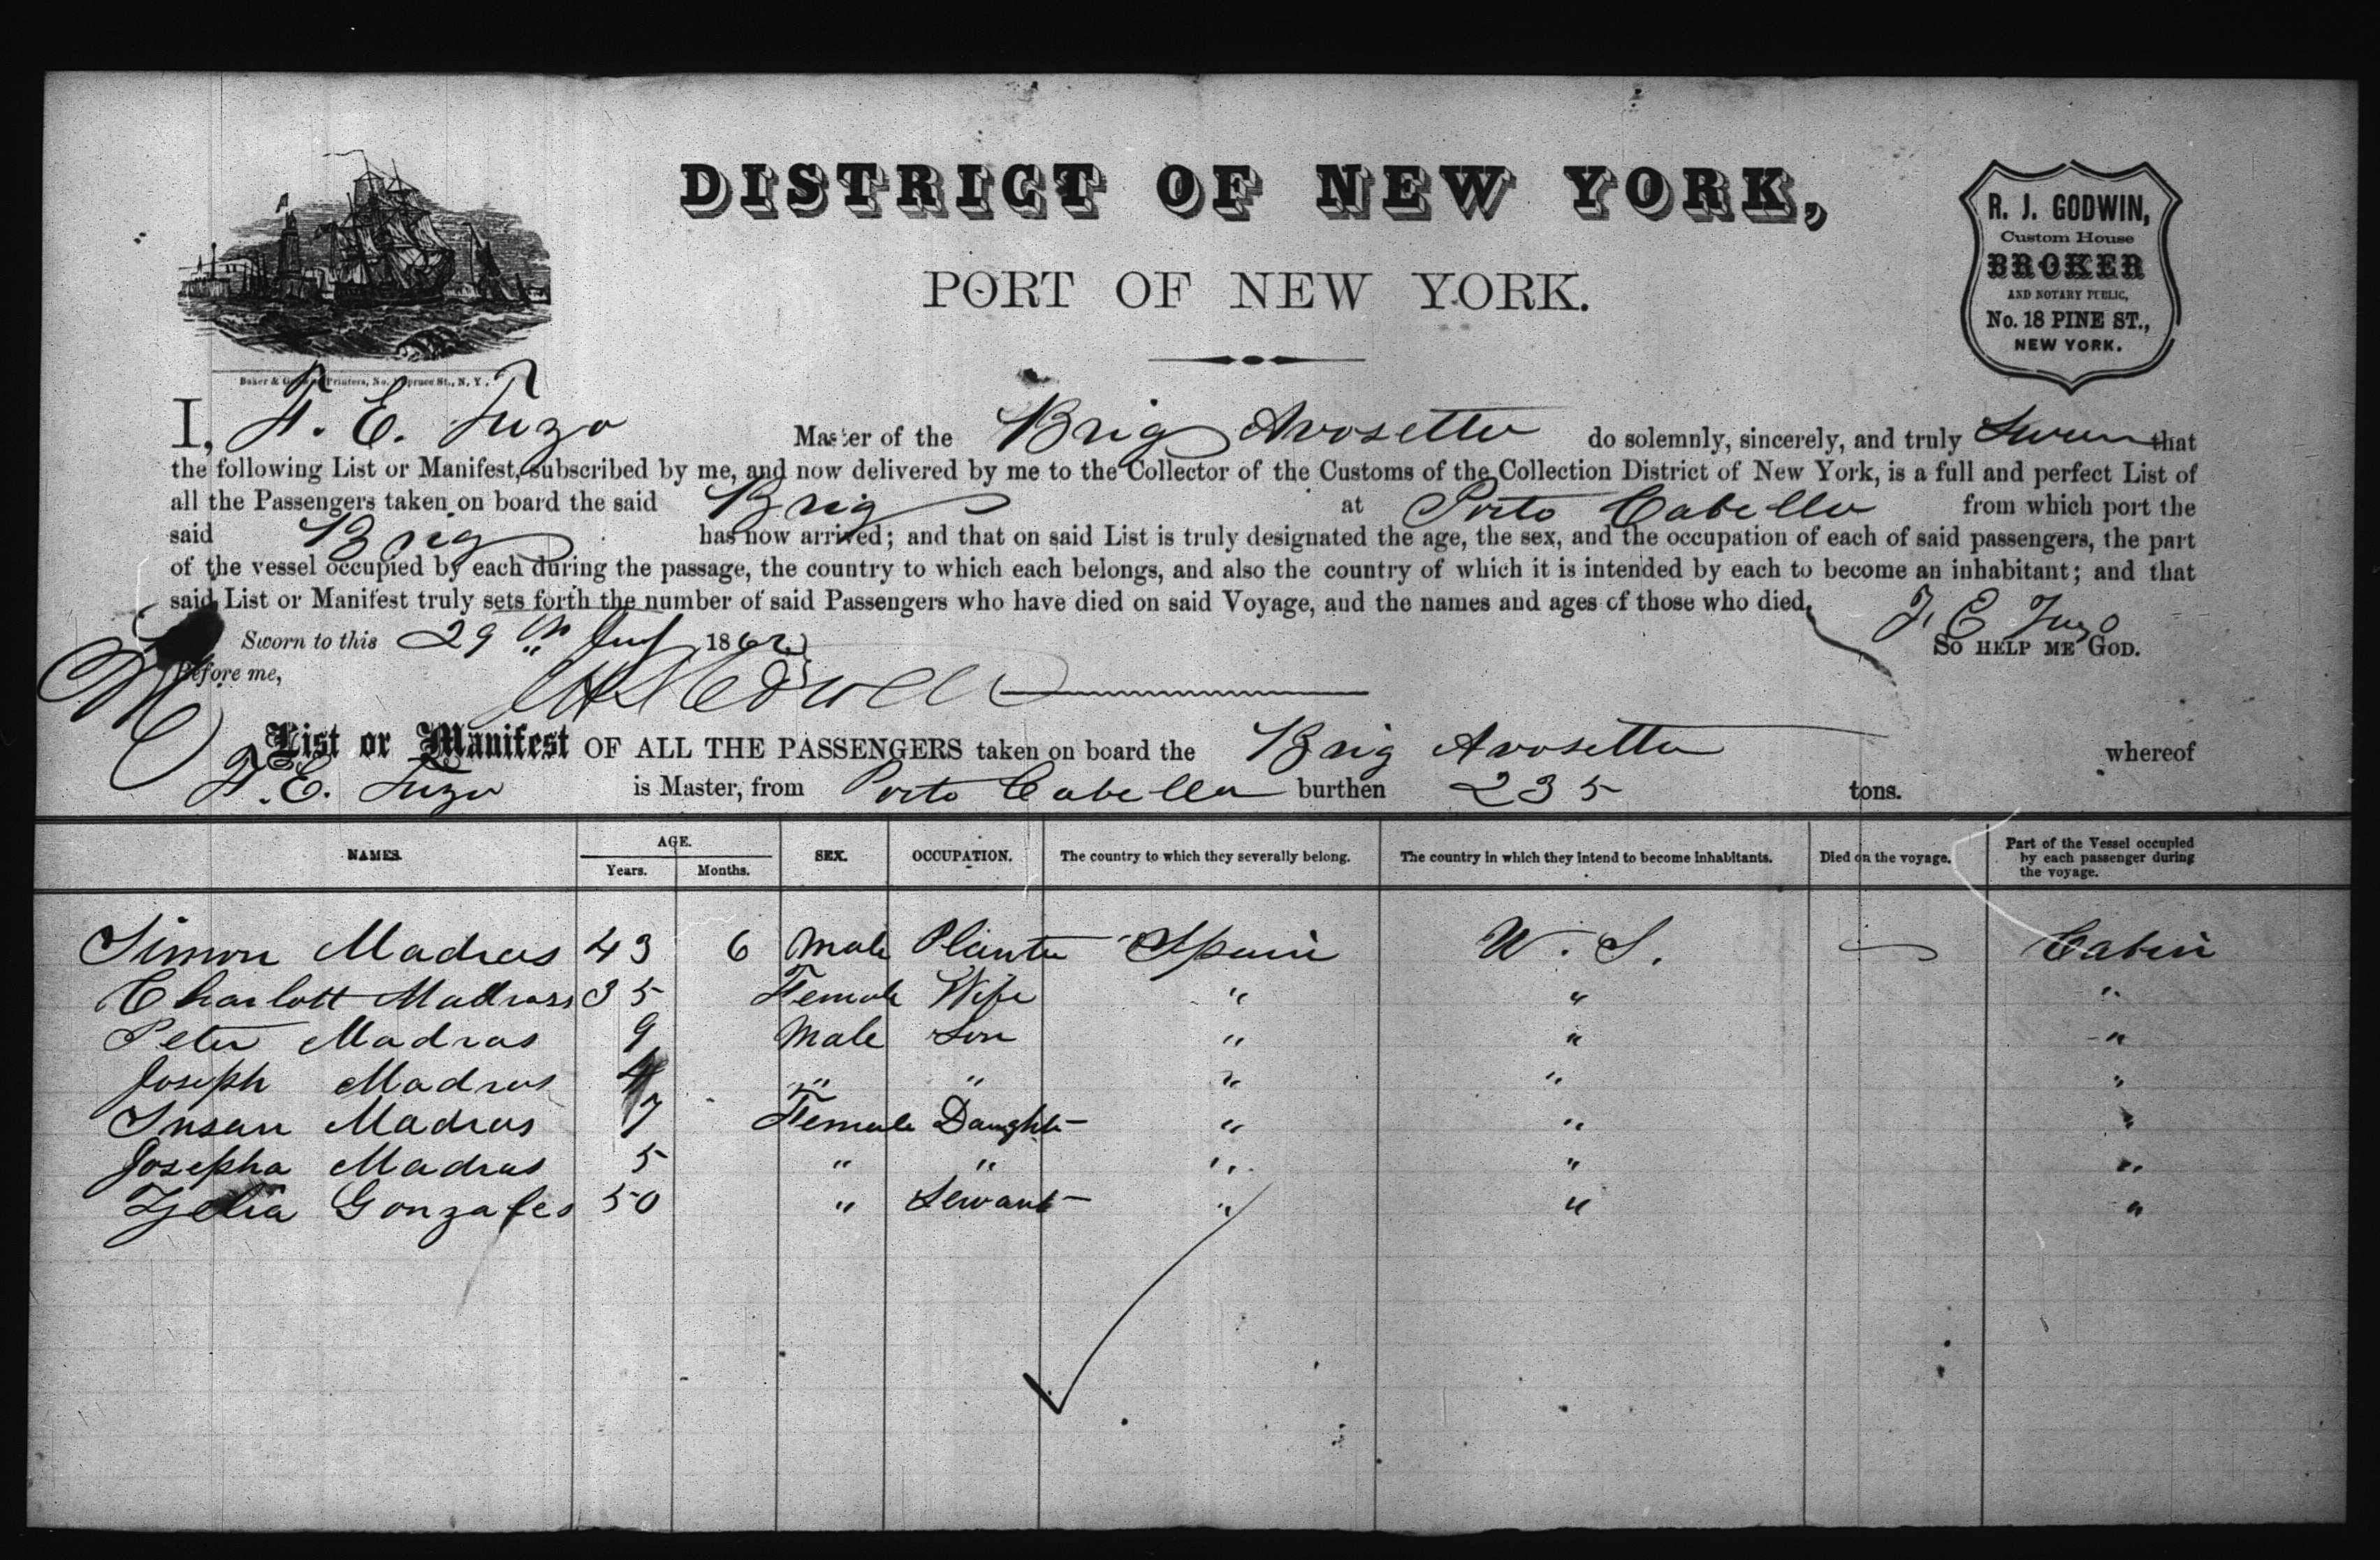 DISTRICT OF NEW YORK,
PORT OF NEW YORK.
R. J. GODWIN,
Custom House
BROKER
AND NOTARY PUBLIC,
No. 18 PINE ST.,
NEW YORK.
Baker & Printers, No. Spruce St., N. Y.
I, F. E. Tuzo Master of the Brig Avosetta do solemnly, sincerely, and truly Swear that
the following List or Manifest, subscribed by me, and now delivered by me to the Collector of the Customs of the Collection District of New York, is a full and perfect List of
all the Passengers taken on board the said Brig at Porto Cabello from which port the
said Brig has now arrived; and that on said List is truly designated the age, the sex, and the occupation of each of said passengers, the part
of the vessel occupied by each during the passage, the country to which each belongs, and also the country of which it is intended by each to become an inhabitant; and that
said List or Manifest truly sets forth the number of said Passengers who have died on said Voyage, and the names and ages of those who died.
F. E. Tuzo
Sworn to this 29th 1862 SO HELP ME GOD.
Before me,
List or Manifest OF ALL THE PASSENGERS taken on board the Brig Avosetta whereof
F. E. Tuzo is Master, from Porto Cabello burthen 235 tons.
NAMES. AGE. Years. Months. SEX. OCCUPATION. The country to which they severally belong. The country in which they intend to become inhabitants. Died on the voyage. Part of the Vessel occupied by each passenger during the voyage.
Simon Madras 43 6 Male Planter Spain U. S. Cabin
Charlott Madras 35 Female Wife " " "
Peter Madras 9 Male Son " " "
Joseph Madras 4 " " " " "
Susan Madras 7 Female Daught " " "
Josepha Madras 5 " " " " "
Zelia Gonzales 50 " Servant " " "